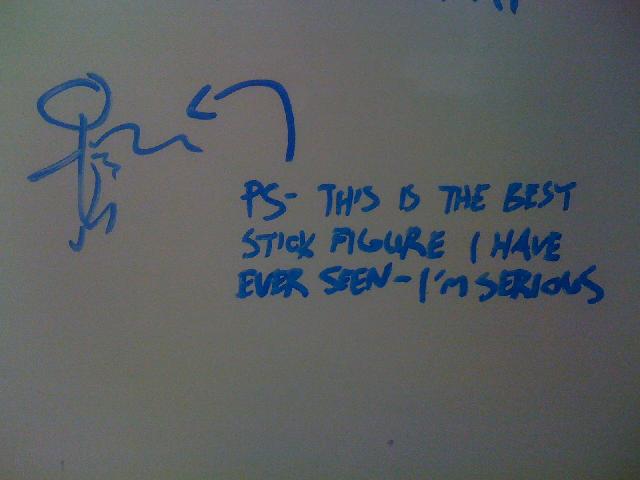 PS- THIS IS THE BEST
STICK FIGURE I HAVE
EVER SEEN- I'M SERIOUS